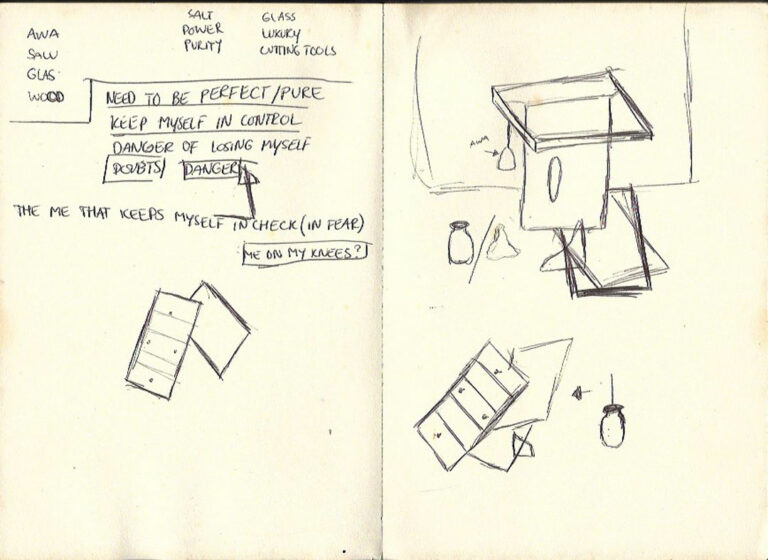 AWA
SAW
GLAS
WOOD
SALT
POWER
PURITY
GLASS
LUXURY
CUTTING TOOLS
NEED TO BE PERFECT/PURE
KEEP MYSELF IN CONTROL
DANGER OF LOSING MYSELF
DOUBTS/ DANGER
THE ME THAT KEEPS MYSELF IN CHECK (IN FEAR)
ME ON MY KNEES?
AWA